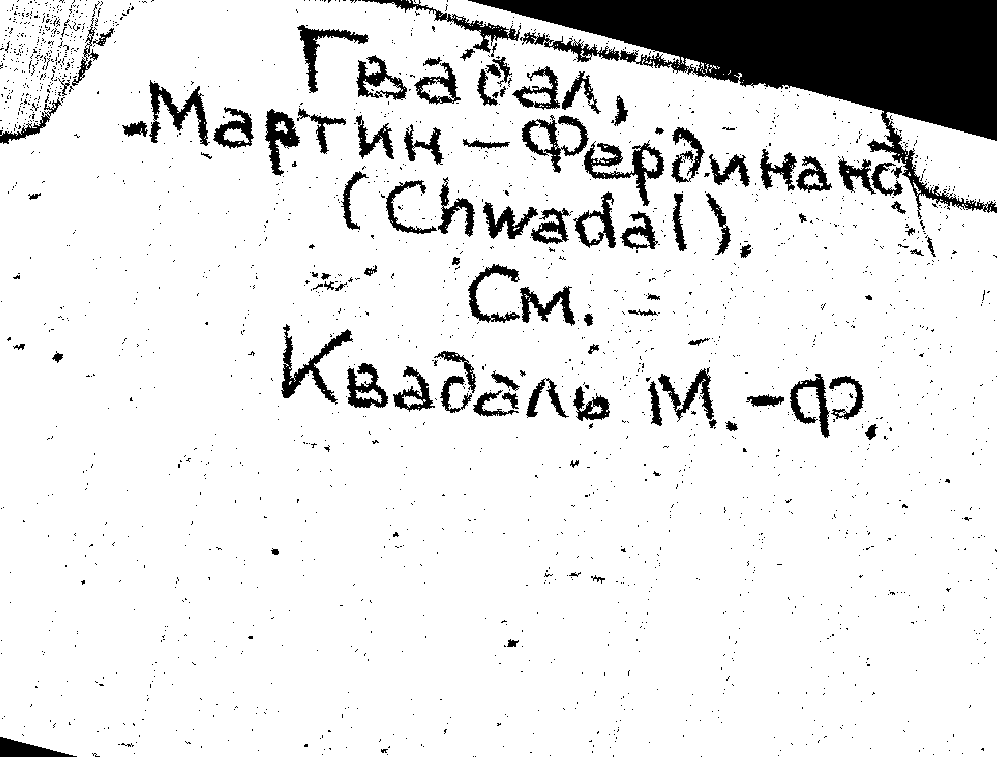 Гвадал,
Мартин-Фердинанд
(Chwadal).
См.
Квадаль М.-Ф.